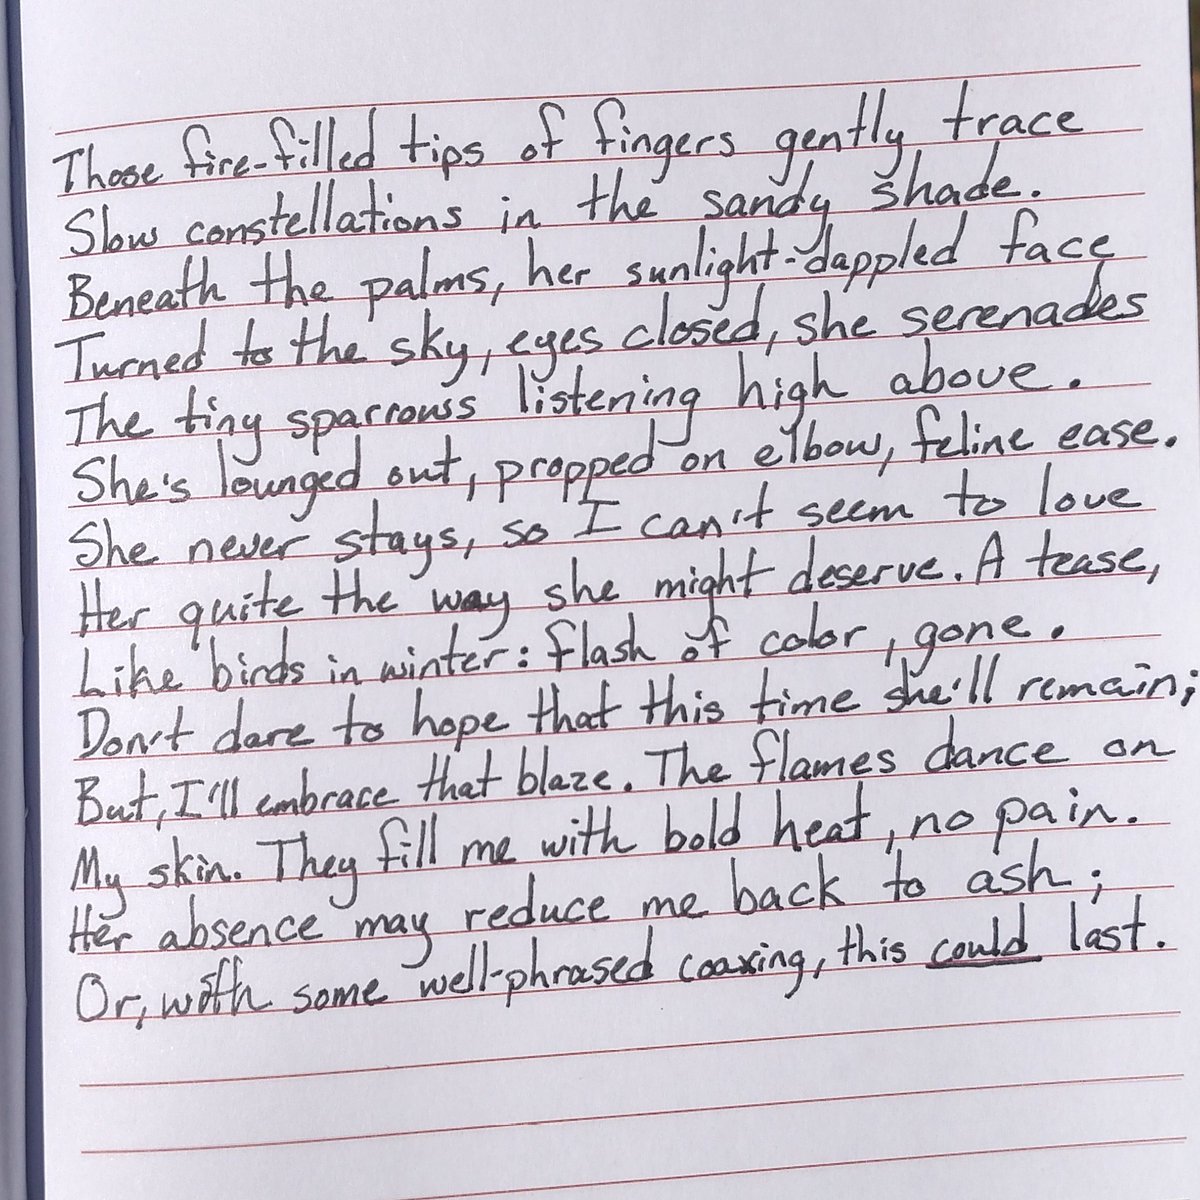 Those fire-filled tips of fingers gently trace
Slow constellations in the sandy shade.
Beneath the palms, her sunlight-dappled face
Turned to the sky, eyes closed, she serenades
The tiny sparrows listening high above.
She's lounged out, propped on elbow, feline ease.
She never stays, so I can't seem to love
Her quite the way she might deserve. A tease,
Like birds in winter: flash of color, gone.
Don't dare to hope that this time she'll remain;
But, I'll embrace that blaze. The flames dance on
My skin. They fill me with bold heat, no pain.
Her absence may reduce me back to ash;
Or, with some well-phrased coaxing, this could last.